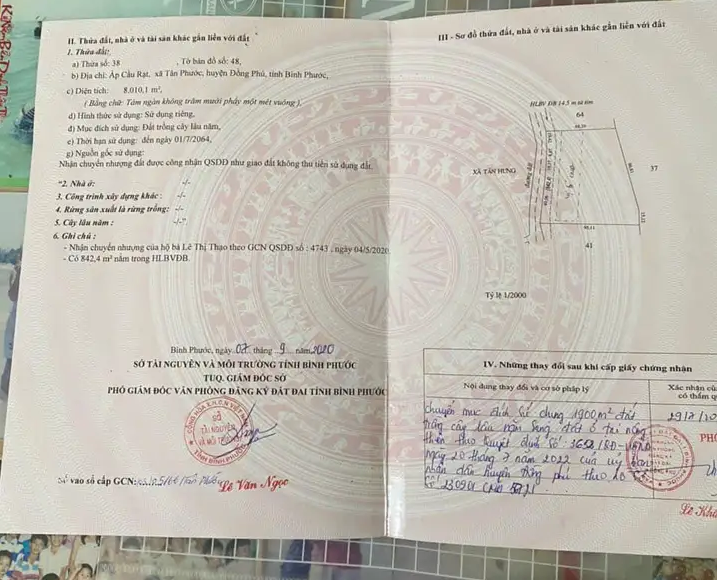 II. Thửa đất, nhà ở và tài sản khác gắn liền với đất
1. Thửa đất:
a) Thửa số: 38 , Tờ bản đồ số: 48,
b) Địa chỉ: Ấp Cầu Rạt, xã Tân Phước, huyện Đồng Phú, tỉnh Bình Phước,
c) Diện tích: 8.010,1 m²,
( Bằng chữ: Tám ngàn không trăm mười phẩy một mét vuông ),
d) Hình thức sử dụng: Sử dụng riêng,
đ) Mục đích sử dụng: Đất trồng cây lâu năm,
e) Thời hạn sử dụng: đến ngày 01/7/2064,
g) Nguồn gốc sử dụng:
Nhận chuyển nhượng đất được công nhận QSDĐ như giao đất không thu tiền sử dụng đất.
"2. Nhà ở: -/-
3. Công trình xây dựng khác : -/-
4. Rừng sản xuất là rừng trồng: -/-
5. Cây lâu năm : -/-"
6. Ghi chú :
- Nhận chuyển nhượng của hộ bà Lê Thị Thạo theo GCN QSDĐ số : 4743 , ngày 04/5/2020
- Có 842,4 m² nằm trong HLBVĐB.
Bình Phước, ngày 07 tháng 9 năm 2020
SỞ TÀI NGUYÊN VÀ MÔI TRƯỜNG TỈNH BÌNH PHƯỚC
TUQ. GIÁM ĐỐC SỞ
PHÓ GIÁM ĐỐC VĂN PHÒNG ĐĂNG KÝ ĐẤT ĐAI TỈNH BÌNH PHƯỚC
SỞ
TÀI NGUYÊN
VÀ MÔI TRƯỜNG
TỈNH BÌNH PHƯỚC
Số vào sổ cấp GCN:
Lê Văn Ngọc
III - Sơ đồ thửa đất, nhà ở và tài sản khác gắn liền với đất
HLBV ĐB 14.5 m
64
XÃ TÂN HƯNG
37
41
Tỷ lệ 1/2000
IV. Những thay đổi sau khi cấp giấy chứng nhận
Nội dung thay đổi và cơ sở pháp lý
Xác nhận củ
có thẩm q
chuyển mục đích sử dụng 1900m² đất
trồng cây lâu năm sang đất ở tại nông
thôn theo Quyết định số: /QĐ-UBND
ngày 20 tháng 7 năm 2022 của uỷ ban
nhân dân huyện Đồng phú theo hồ
PHÓ
Lê Kh